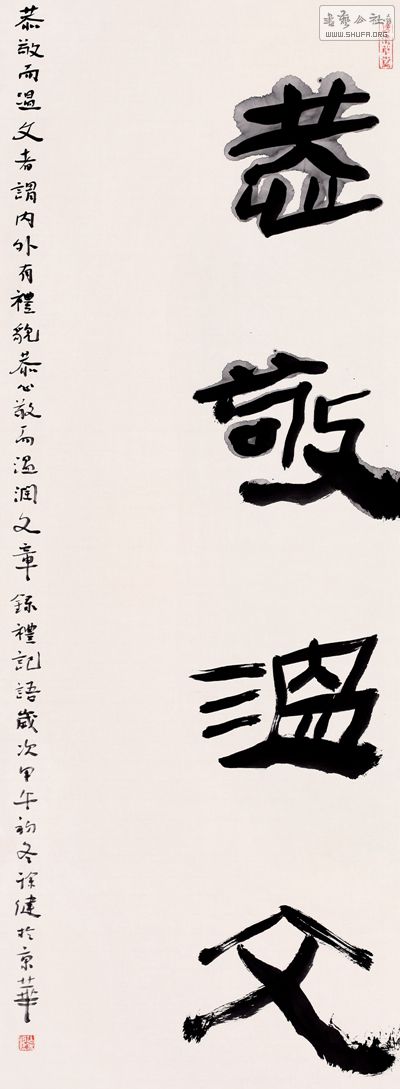 恭敬温文
恭敬而温文者謂内外有禮貌恭心敬而温潤文章 錄禮記語歲次甲午初冬徐健於京華
書法公社
WWW.SHUFA.ORG